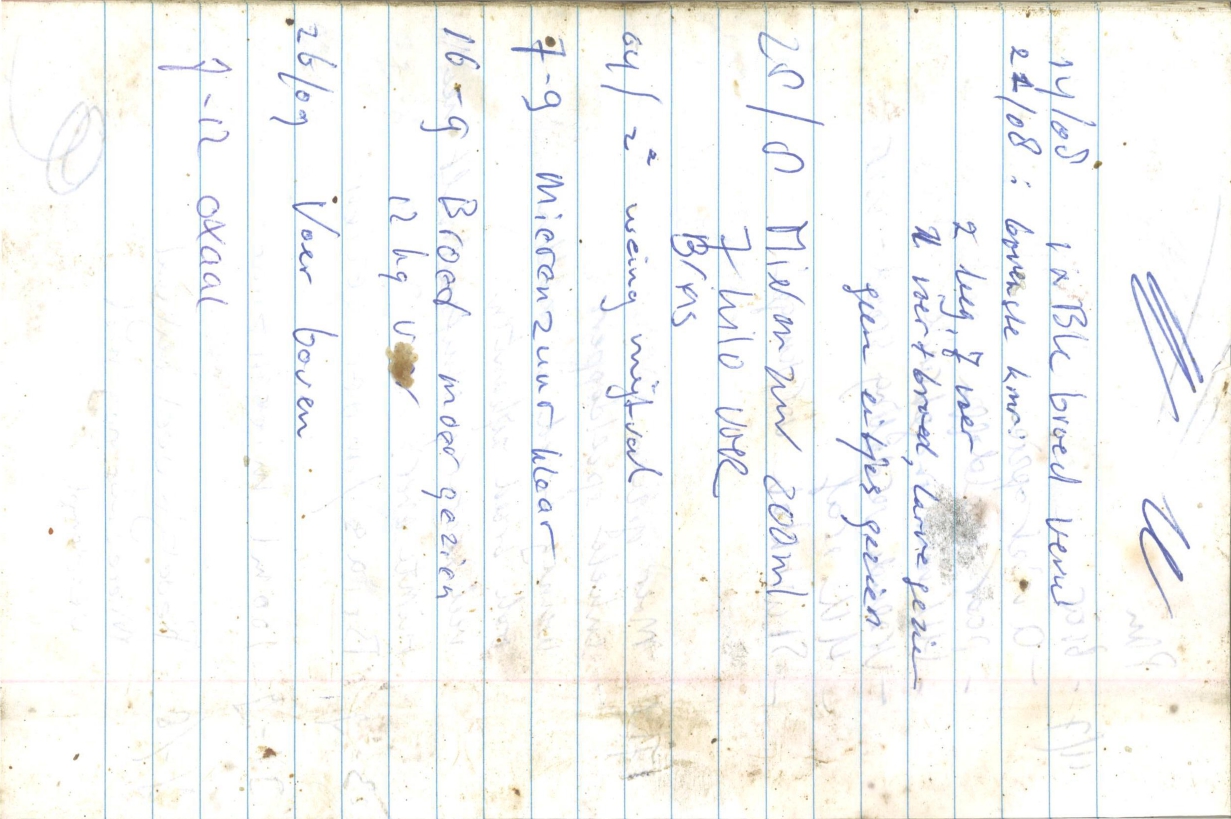 14/08 1x Bk broed verni
21/08 : bovenste kmr:
2 leeg, 7 voer
1 voer + broed, larve gezien
geen eitjes gezien
25/8 Mierenzuur 200ml
7 kilo voer
Brns
04/ 2e weinig mijtval
7-9 Mierenzuur klaar
16-9 Broed moer gezien
12 kg voer
26/09 Voer boven
7-12 oxaal